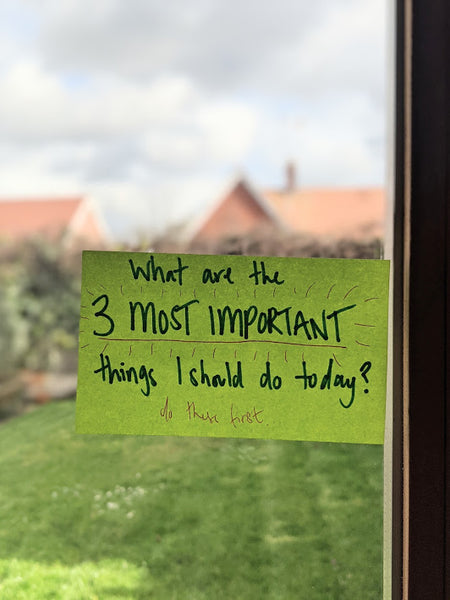 What are the
3 MOST IMPORTANT
things I should do today?
do these first.